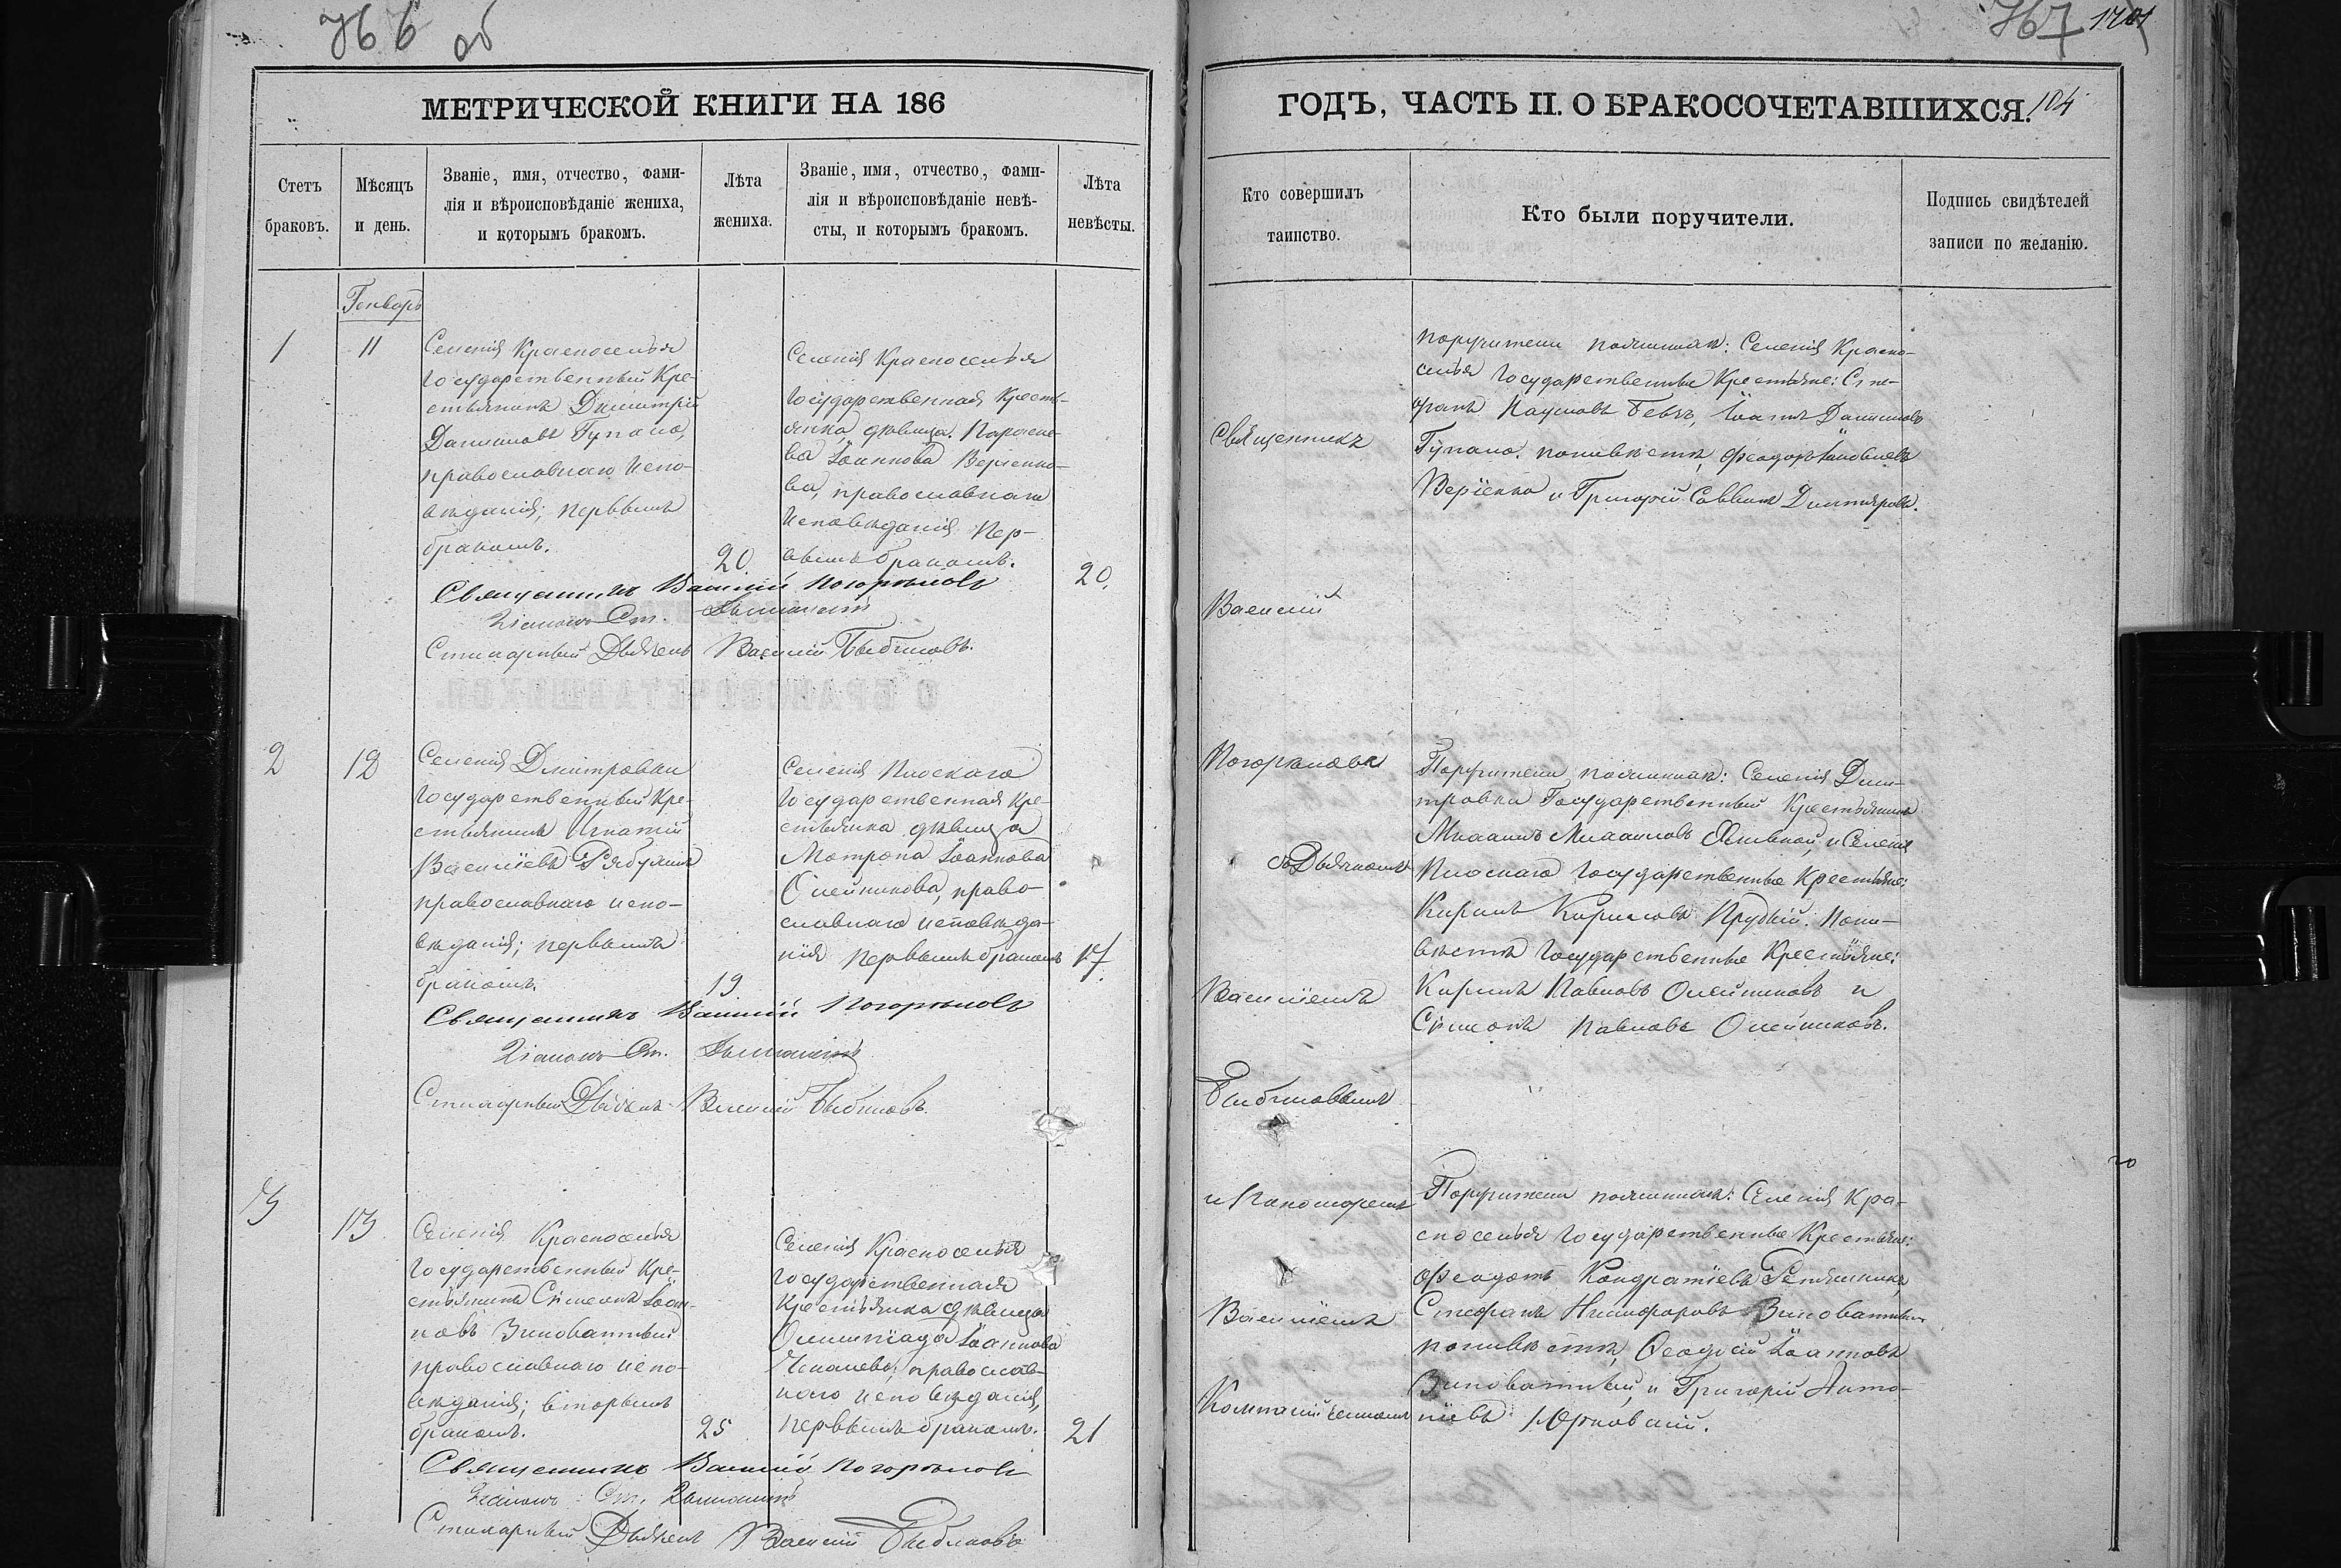 766 об
МЕТРИЧЕСКОЙ КНИГИ НА 186
Стетъ
браковъ.
Мѣсяцъ
и день.
Званіе, имя, отчество, фами-
лія и вѣроисповѣданіе жениха,
и которымъ бракомъ.
Лѣта
жениха.
Званіе, имя, отчество, фами-
лія и вѣроисповѣданіе невѣ-
сты, и которымъ бракомъ.
Лѣта
невѣсты.
Генворь
1
11
Селенія Красноселья
Государственный Кре-
стьянинъ Димитрій
Даниловъ Гупало,
православнаго испо-
вѣданія; первымъ
бракомъ.
20
Селенія Красноселья
Государственная Кресть-
янка дѣвица Параске-
ва Іоаннова Верѣенко-
ва, православнаго
исповѣданія пер-
вымъ бракомъ.
20.
Священникъ Василій Погорѣловъ
Діаконъ Ст.
Стихарный Дьячекъ Василій Бибиковъ.
2
12
Селенія Дмитровки
Государственный Кре-
стьянинъ Игнатій
Васильевъ Рябушка
православнаго испо-
вѣданія; первымъ
бракомъ.
19
Селенія Плоскаго
Государственная Кре-
стьянка дѣвица
Матрона Іоаннова
Олейникова, право-
славнаго исповѣда-
нія первымъ бракомъ
17.
Священникъ Василій Погорѣловъ
Діаконъ Ст.
Стихарный Дьячекъ Василій Бибиковъ.
3
13
Селенія Красноселья
Государственный Кре-
стьянинъ Сѵмеонъ Іоан-
новъ Зиноватный
православнаго испо-
вѣданія; вторымъ
бракомъ.
25
Селенія Красноселья
Государственная
Крестьянка дѣвица
Олимпіада Іоаннова
православ-
наго исповѣданія,
первымъ бракомъ.
21
Священникъ Василій Погорѣловъ
Діаконъ Ст.
Стихарный Дьячекъ Василій Бибиковъ
767
ГОДЪ, ЧАСТЬ II. О БРАКОСОЧЕТАВШИХСЯ.
104
Кто совершилъ
таинство.
Кто были поручители.
Подпись свидѣтелей
записи по желанію.
Священникъ
Василій
Погорѣловъ
съ Дьячкомъ
Василіемъ
Бибиковымъ
и Пономоремъ
Василіемъ
Компанійченкомъ
поручители по женихѣ: Селенія Красно-
селья Государственные Крестьяне: Сте-
фанъ Наумовъ Іоаннъ Даниловъ
Гупало. по невѣстѣ, Феодоръ
Верѣенко и Григорій Саввинъ
Поручители по женихѣ: Селенія Дми-
тровки Государственный Крестьянинъ
Михаилъ Михаиловъ и Селенія
Плоскаго Государственные Крестьяне:
Кирилъ Кириловъ Прудкій. По не-
вѣстѣ Государственные Крестьяне:
Кирилъ Павловъ Олейниковъ и
Сѵмеонъ Павловъ Олейниковъ.
Поручители по женихѣ: Селенія Кра-
сноселья Государственные Крестьяне:
Феодотъ Кондратіевъ
Стефанъ Никифоровъ Зиноватный
по невѣстѣ, Феодосій Іоанновъ
Зиноватный, и Григорій Анто-
ніевъ Юрковскій.